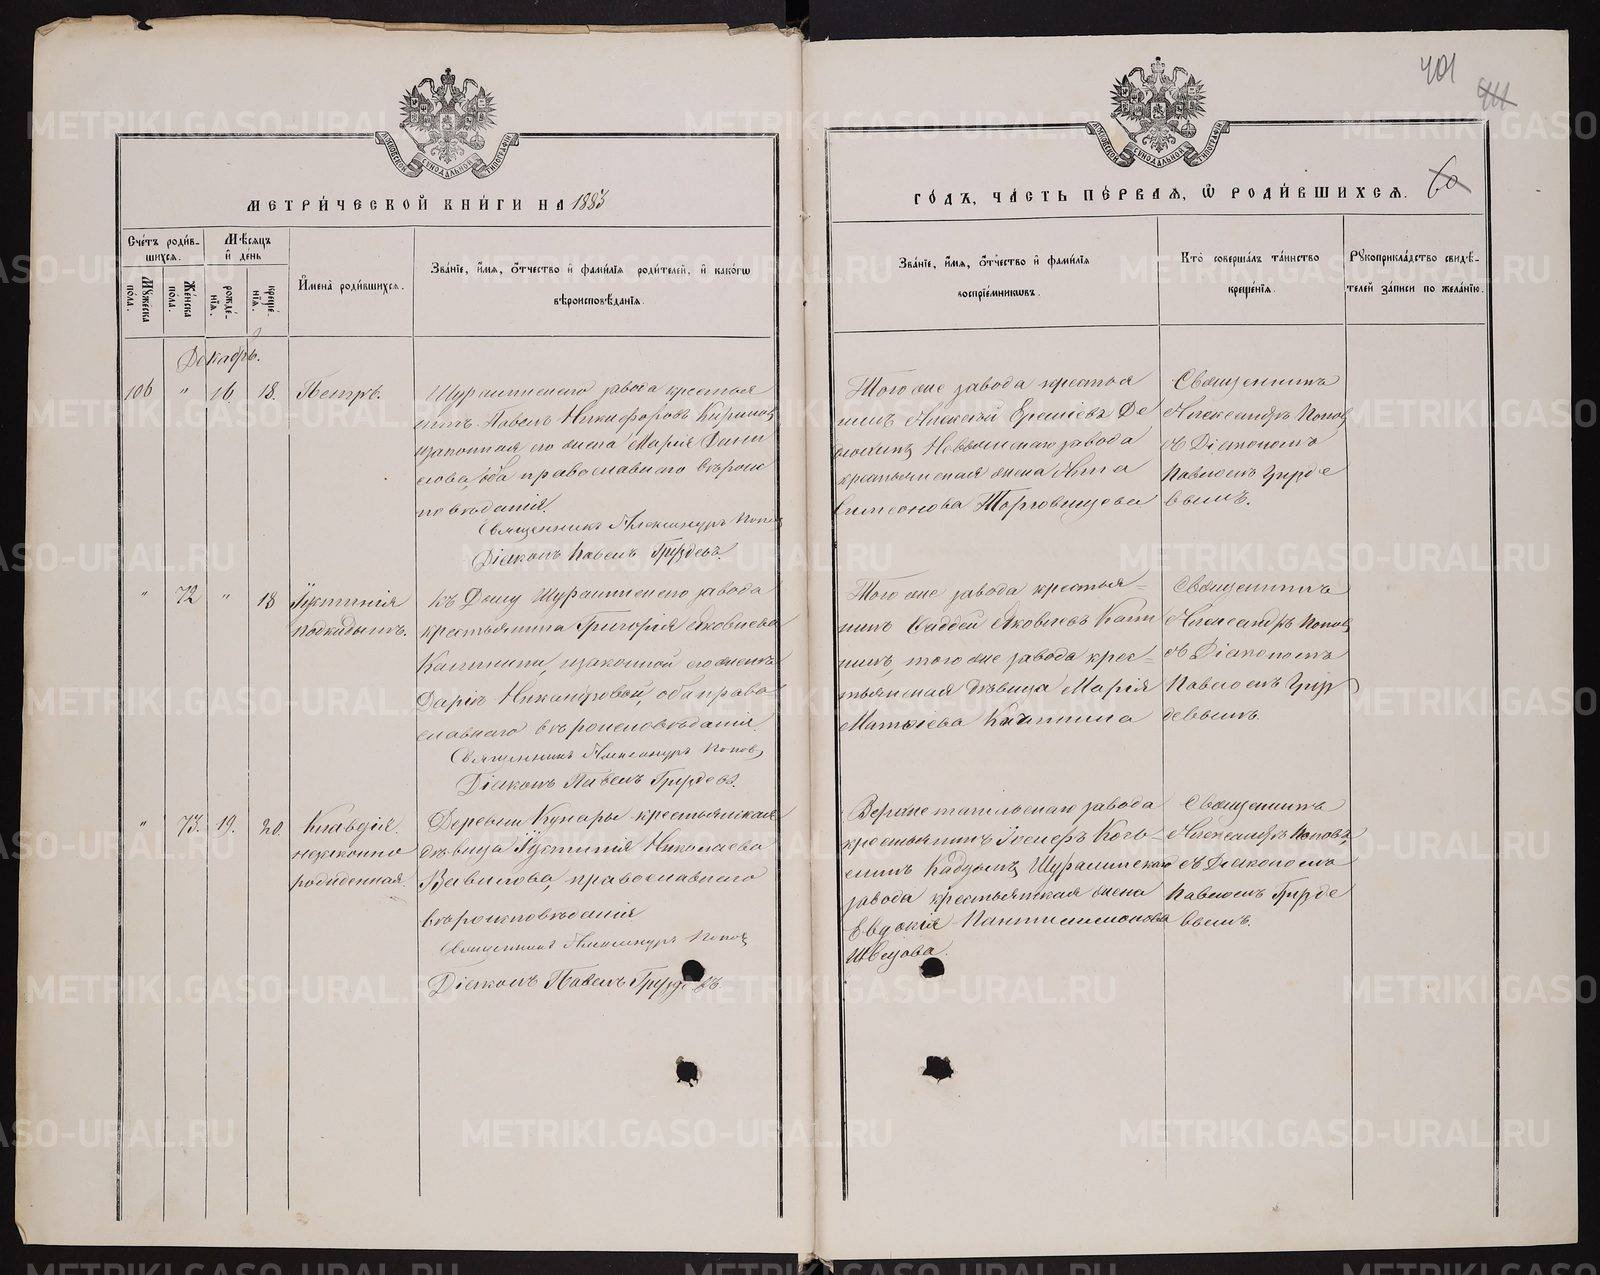 401
60
МЕТРИ́ЧЕСКОЙ КНИ́ГИ НА 1883
ГО́ДЪ, ЧА́СТЬ ПЕ́РВАЯ, Ѡ РОДИ́ВШИХСЯ.
МОСКОВСКОЙ СѴНОДАЛЬНОЙ ТИПОГРАФІИ
МОСКОВСКОЙ СѴНОДАЛЬНОЙ ТИПОГРАФІИ
Сче́тъ роди́в-
шихся.
Мѣ́сяцъ
и҆ де́нь
Мꙋ́жеска
пола.
Же́нска
пола.
рожде́-
нїѧ.
креще́-
нїѧ.
И҆мена̀ роди́вшихсѧ.
Зва́нїе, и҆́мѧ, ѻ҆́тчество и҆ фами́лїѧ роди́телей, и҆ како́гѡ
вѣроисповѣ́данїѧ.
Зва́нїе, и҆́мѧ, ѻ҆́тчество и҆ фами́лїѧ
воспрїе́мникѡвъ.
Кто̀ соверша́лъ та́инство
креще́нїѧ.
Рꙋкоприкла́дство свидѣ́-
телей за́писи по жела́нїю.
Декабрь.
106 " 16. 18. Петръ.
Шуралинскаго завода крестья
нинъ Павелъ Никифоровъ
и законная его жена Марія
оба православнаго вѣроис
повѣданія.
Священникъ Александръ Попов
Діаконъ Павелъ Груздевъ.
Того же завода крестья
нинъ Алексѣй
Невьянскаго завода
крестьянская жена Анна
Симеонова Торговищева
Священникъ
Александръ Попов
съ Діакономъ
Павломъ Грузде
вымъ.
" 72 " 18 Іустинія
подкидышъ.
Къ Дому Шуралинскаго завода
крестьянина Григорія Яковлева
Калинина, и законной его женѣ
Даріѣ Никаноровой, оба право
славнаго вѣроисповѣданія.
Священникъ Александръ Попов
Діаконъ Павелъ Груздевъ.
Того же завода крестья-
нинъ Ѳаддей Яковлевъ Кали
нинъ, того же завода крес-
тьянская дѣвица Марія
Матѳіева Калинина
Священникъ
Александръ Попов
съ Діакономъ
Павломъ Груз
девымъ.
" 73. 19. 20. Клавдія.
незаконно
рожденная.
Деревни Кунары крестьянская
дѣвица Іустинія Николаева
Вавилова, православнаго
вѣроисповѣданія
Священникъ Александръ Попов
Діаконъ Павелъ Груздевъ.
Верхнетагильскаго завода
крестьянинъ Іосифъ Козь-
минъ Шуралинскаго
завода крестьянская жена
Евдокія Пантилимонова
Швецова.
Священникъ
Александръ Поповъ,
съ Діакономъ
Павломъ Грузде
вымъ.
METRIKI.GASO-URAL.RU